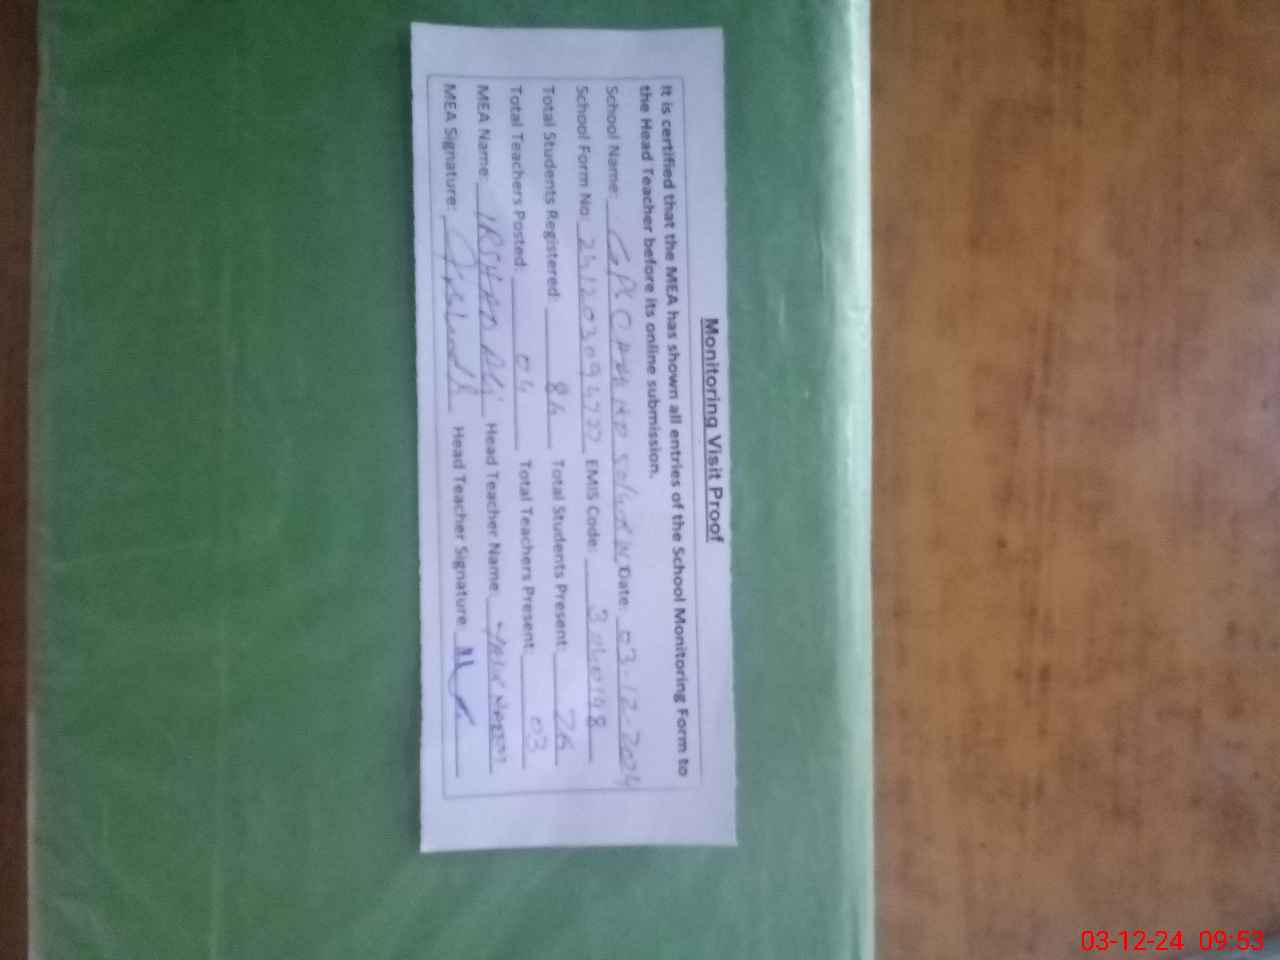 Monitoring Visit Proof
It is certified that the MEA has shown all entries of the School Monitoring Form to
the Head Teacher before its online submission.
School Name: Date: 03-12-2024
School Form No: EMIS Code:
Total Students Registered: 84 Total Students Present: 76
Total Teachers Posted: 04 Total Teachers Present: 03
MEA Name: IRSHAD ALI Head Teacher Name:
MEA Signature: Head Teacher Signature
03-12-24 09:53